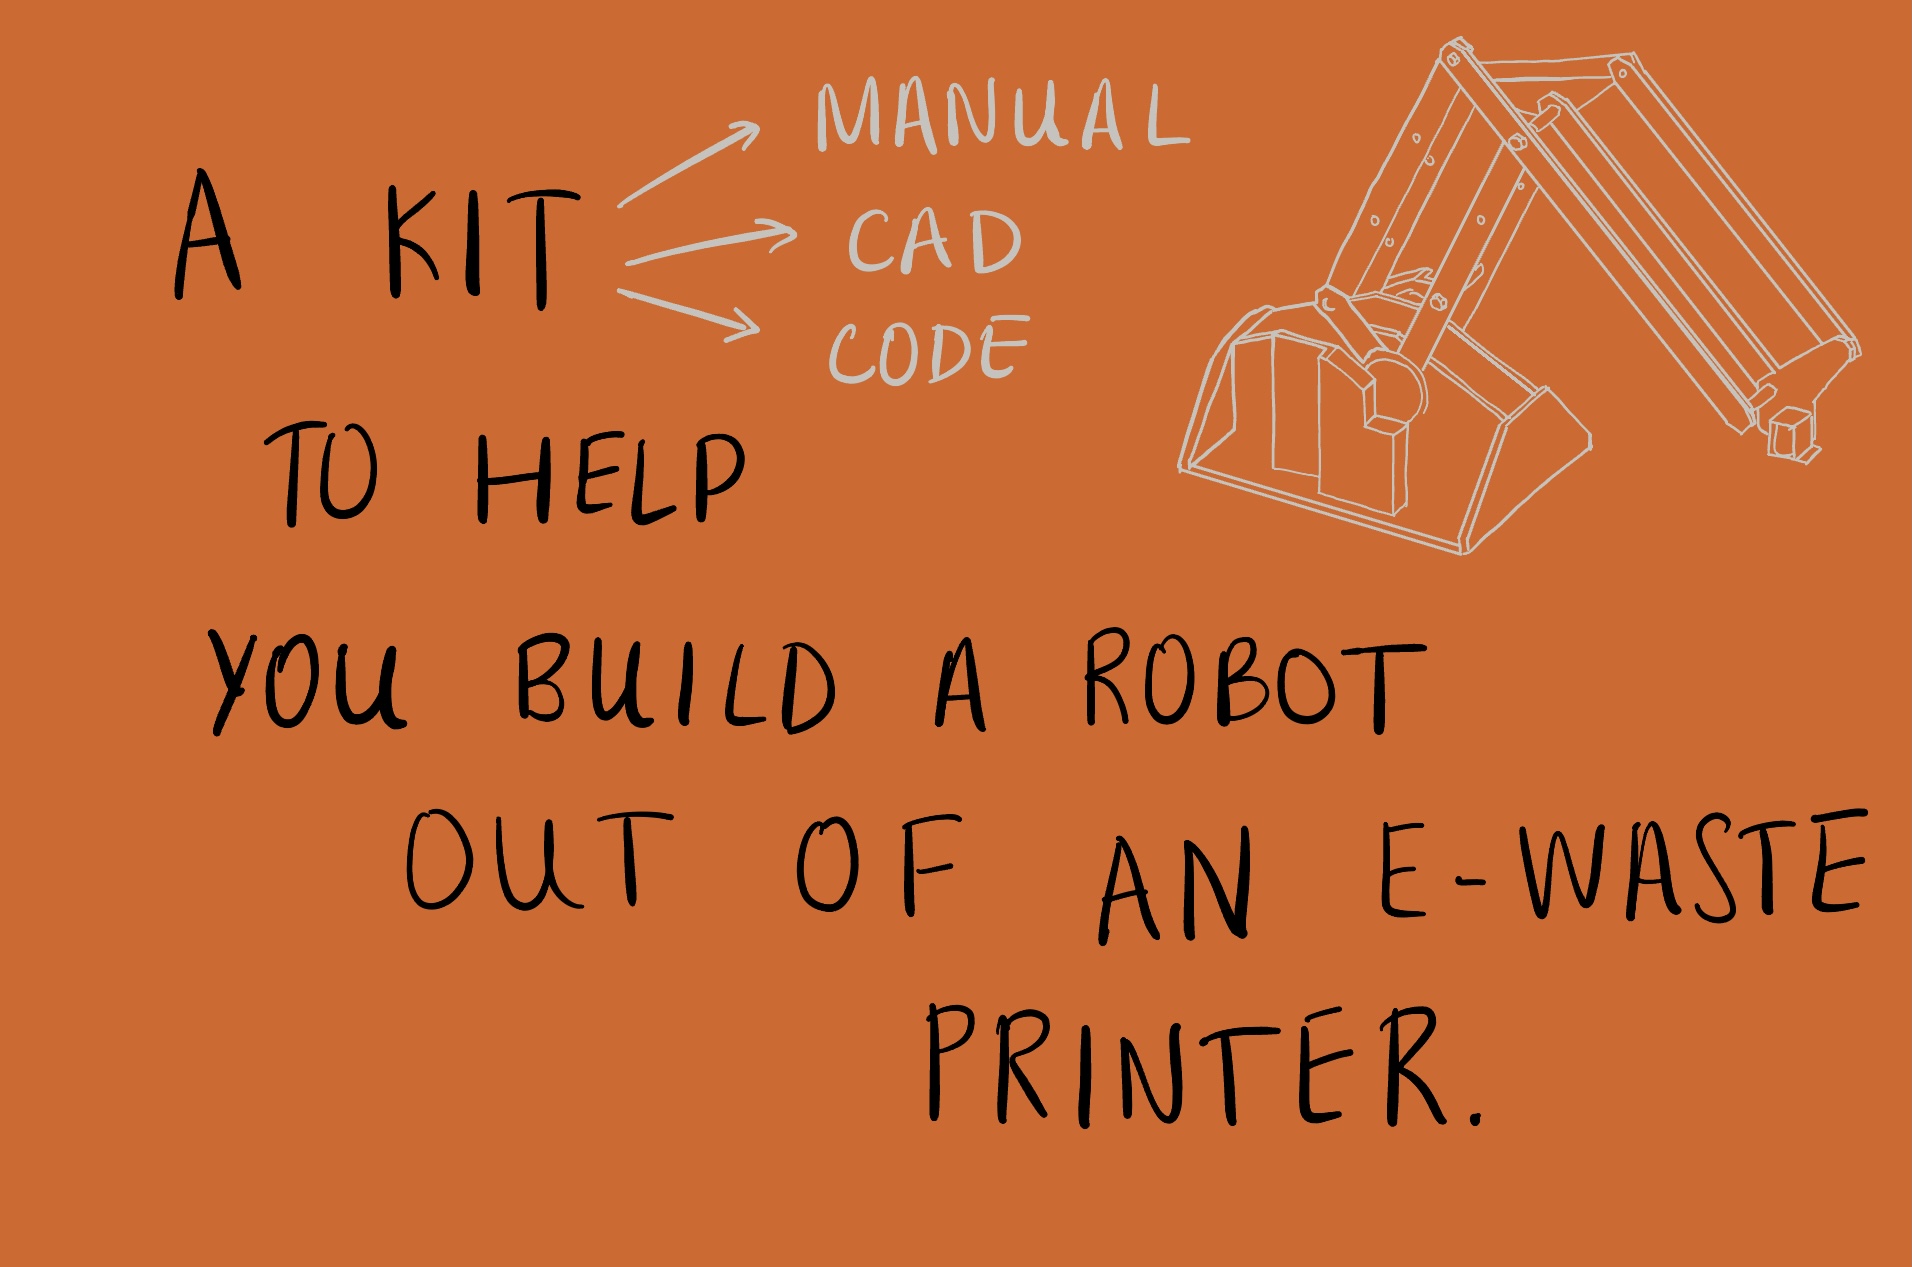 A KIT
MANUAL
CAD
CODE
TO HELP
YOU BUILD A ROBOT
OUT OF AN E-WASTE
PRINTER.